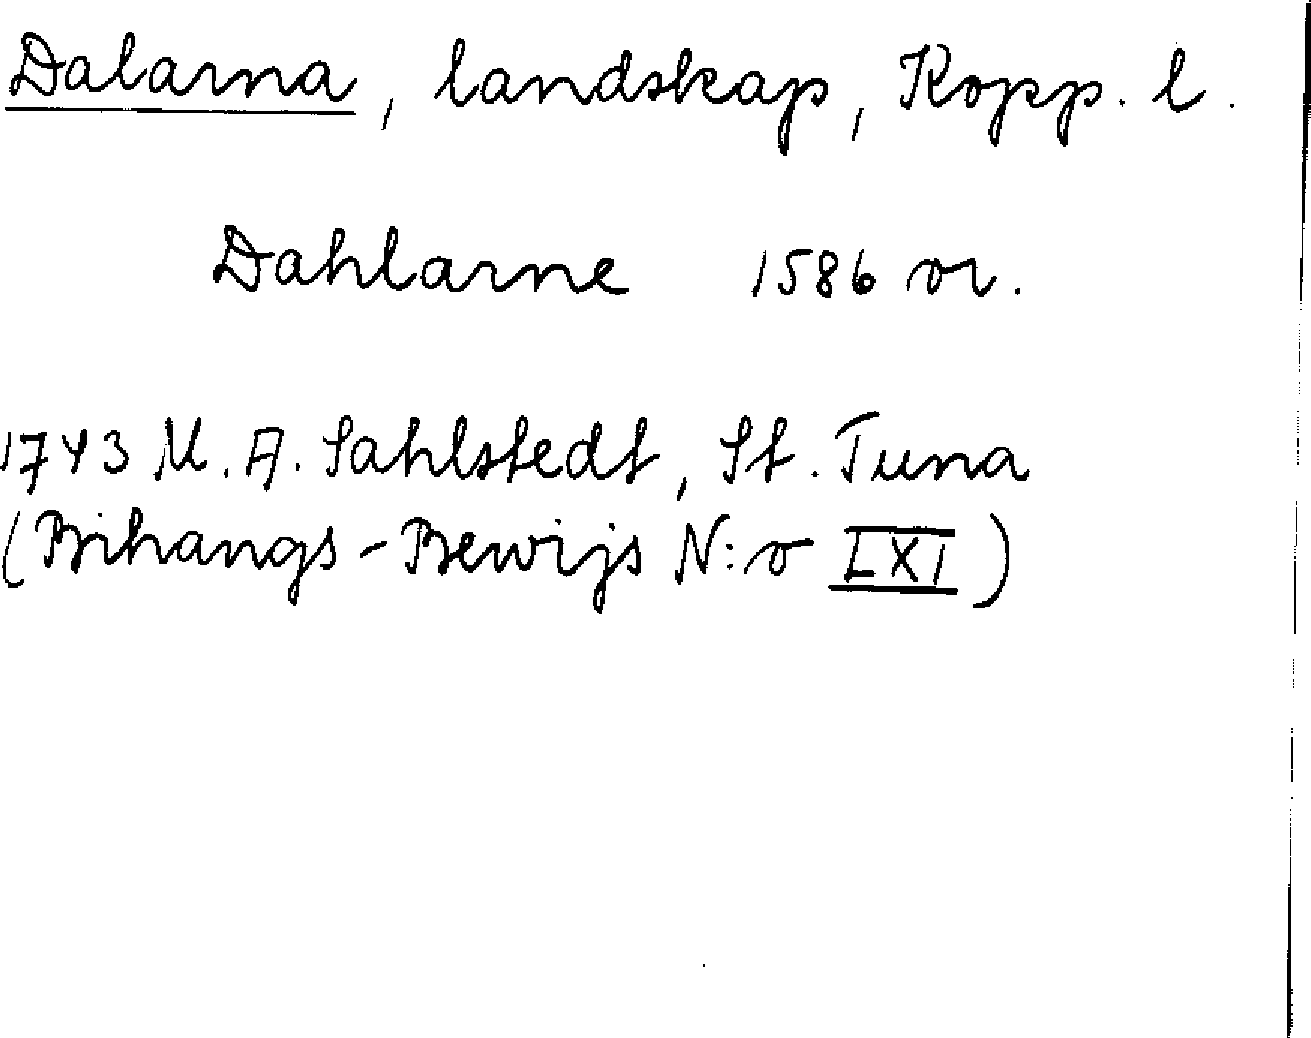 Dalarna, landskap, Kopp. l.
Dahlarne 1586 or.
1743 M. A. Sahlstedt, St. Tuna
(Bihangs-Bewijs N:o LXI)